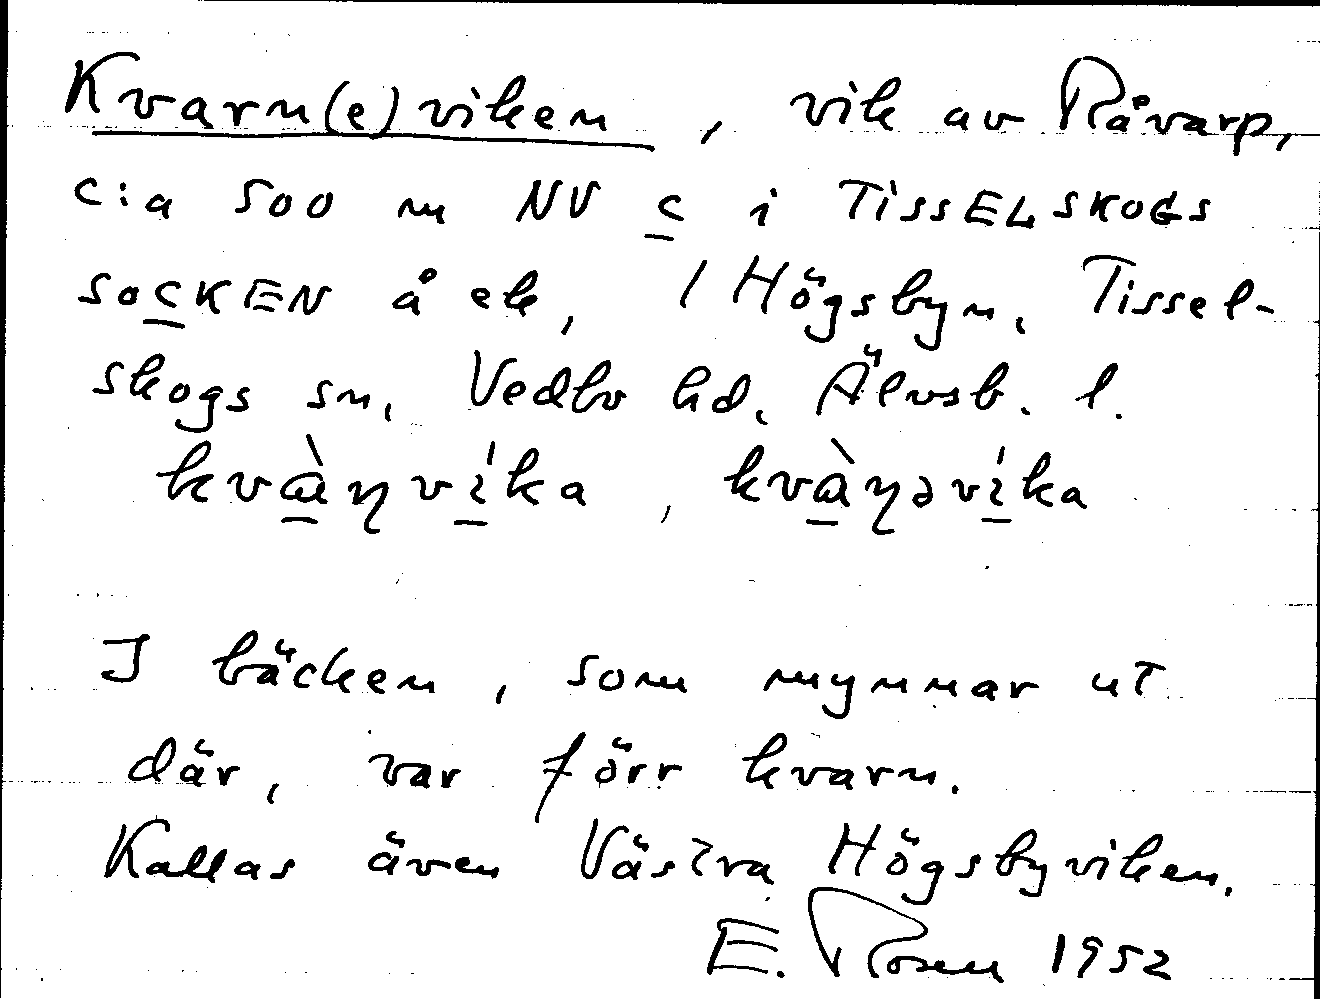 Kvarn(e)viken, vik av Råvarp,
c:a 500 m NV c i TISSELSKOGS
SOCKEN å ek, / Högsbyn, Tissel-
skogs sn, Vedbo hd, Älvsb. l.
kvàŋvíka, kvàŋəvíka
I bäcken, som mynnar ut
där, var förr kvarn.
Kallas även Västra Högsbyviken.
E. Rosell 1952